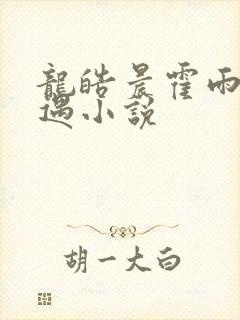 龍皓晨霍雨
遇小説
胡一大白